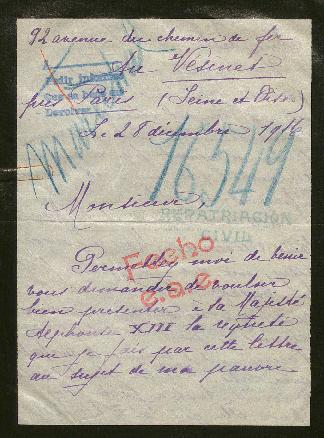 92 avenue du chemin de fer
du Vesinet
près Paris (Seine et Oise)
Le 28 décembre 1916
16549
Monsieur,
REPATRIACION
CIVIL
Fecho
Permettez moi de venir
vous demander de vouloir
bien présenter à Sa Majesté
Alphonse XIII la requête
que je fais par cette lettre
au sujet de mon pauvre